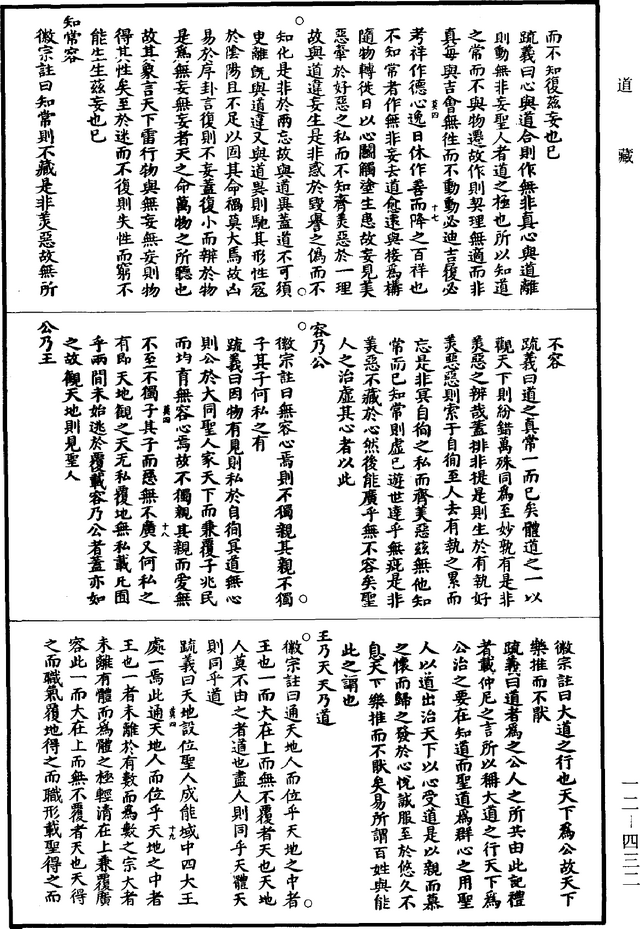 道藏
而不知復茲妄也已
疏義曰心與道合則作無非真心與道離
則動無非妄聖人者道之極也所以知道
之常而不與物遷故作則契理無適而非
真每與吉會無徃而不動動必迪吉復必
考祥作德心逸日休作善而降之百祥也
莫四 十七
不知常者作無非妄去道愈遠與接為構
隨物轉徙日以心鬭觸塗生患故妄見美
惡牽於好惡之私而不知齊美惡於一理
故與道違妄生是非惑於毀譽之偽而不
知化是非於兩忘故與道異蓋道不可須
臾離既與道違又與道異則馳其形性寇
於陰陽且不足以固其命禍莫大焉故凶
易於序卦言復則不妄蓋復小而辨於物
是為無妄無妄者天之命萬物之所聽也
故其象言天下雷行物與無妄與無妄則物
得其性矣至於迷而不復則失性而窮不
能生生茲妄也已
知常容
徽宗註曰知常則不藏是非美惡故無所
不容
疏義曰道之真常一而已矣體道之一以
觀天下則紛錯萬殊同為至妙孰有是非
美惡之辨哉蓋排非提是則生於有執好
美惡惡則索于自徇至人去有執之累而
忘是非冥自徇之私而齊美惡茲無他知
常而已知常則虛已遊世達乎無疵是非
美惡不藏於心然後能廣乎無不容矣聖
人之治虛其心者以此
容乃公
徽宗註曰無容心焉則不獨親其親不獨
子其子何私之有
疏義曰因物有見則私於自徇冥道無心
則公於大同聖人家天下而兼覆子兆民
而均育無容心焉故不獨親其親而愛無
莫四 十八
不至不獨子其子而惠無不廣又何私之
有即天地觀之天无私覆地無私載凡囿
乎兩間未始逃於覆載容乃公者蓋亦如
之故觀天地則見聖人
公乃王
徽宗註曰大道之行也天下為公故天下
樂推而不猒
疏義曰道者為之公人之所共由此記禮
者載仲尼之言所以稱大道之行天下為
公治之要在知道而聖道為群心之用聖
人以道出治天下以心受道是以親而慕
之懷而歸之發於心悅誠服至於悠久不
息天下樂推而不猒矣易所謂百姓與能
此之謂也
王乃天天乃道
徽宗註曰通天地人而位乎天地之中者
王也一而大在上而無不覆者天也天地
人莫不由之者道也盡人則同乎天體天
則同乎道
疏義曰天地設位聖人成能域中四大王
莫四 十九
處一焉此通天地人而位乎天地之中者
王也一者未離於有數而為數之宗大者
未離有體而為體之極輕清在上兼覆廣
容此一而大在上而無不覆者天也天得
之而職氣覆地得之而職形載聖得之而
一二－四三二